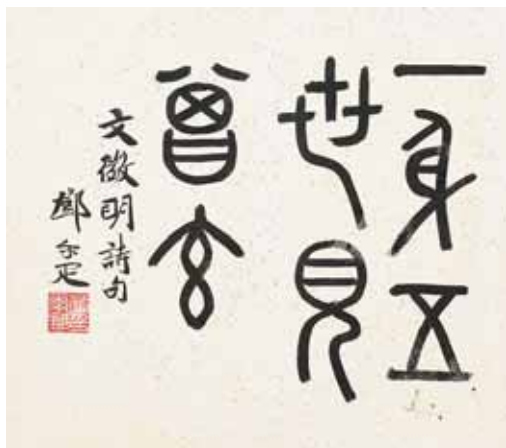 一身五
世見
曾玄
文徵明詩句
鄧尔疋